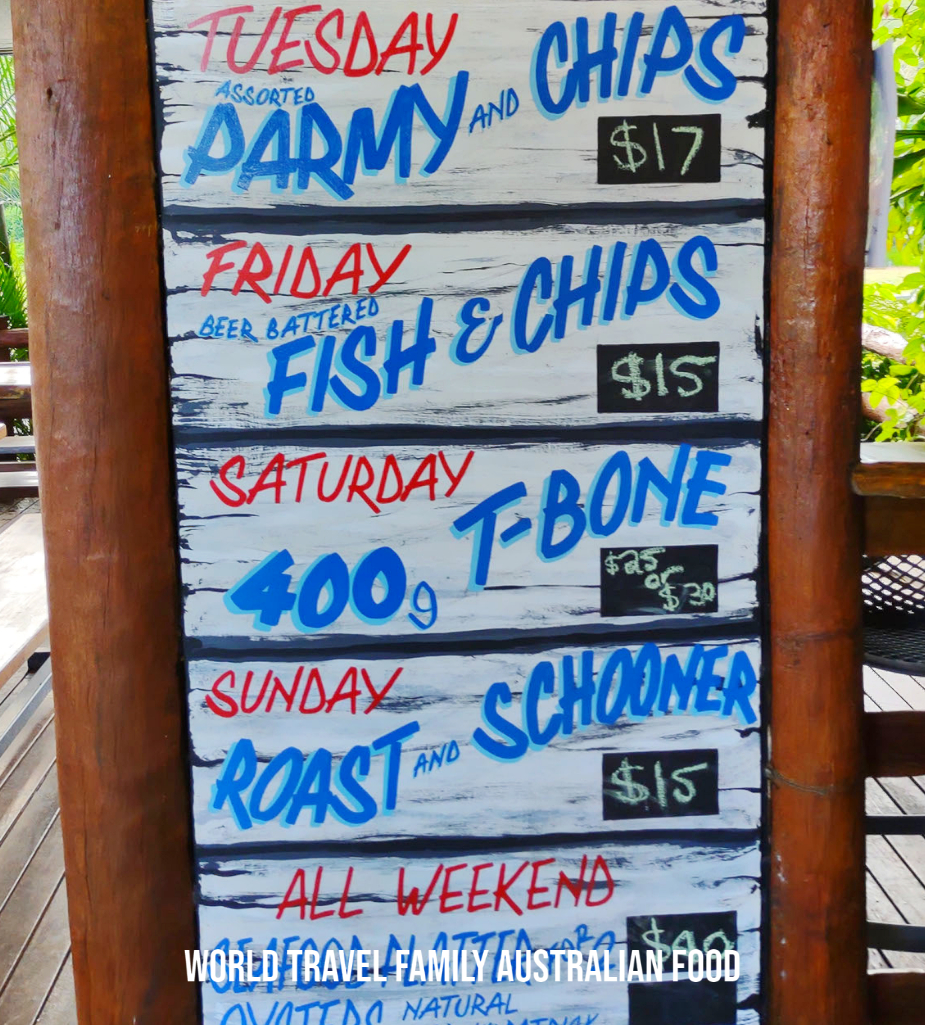 TUESDAY
ASSORTED
PARMY AND CHIPS
$17
FRIDAY
BEER BATTERED
FISH & CHIPS
$15
SATURDAY
400g T-BONE
$25
or
$30
SUNDAY
ROAST AND SCHOONER
$15
ALL WEEKEND
SEAFOOD PLATTER FOR 2
$90
WORLD TRAVEL FAMILY AUSTRALIAN FOOD
OYSTERS NATURAL